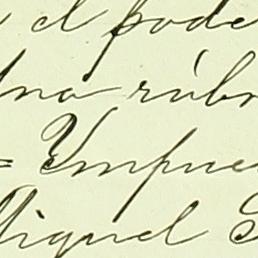 el pode
una rúbr
= Ympue
Miguel S